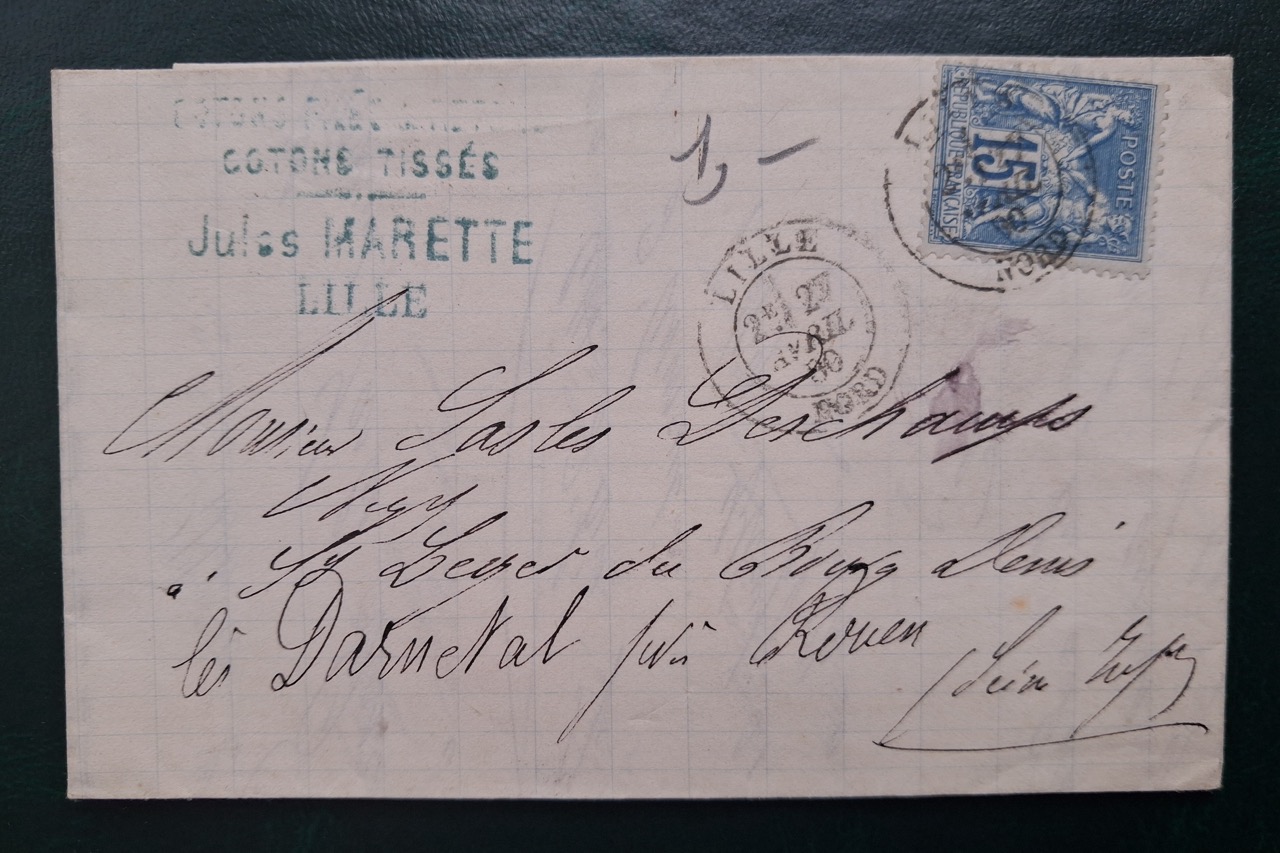 COTONS FILÉS
COTONS TISSÉS
Jules MARETTE
LILLE
1,-
POSTE
15
RÉPUBLIQUE FRANÇAISE
NORD
LILLE
2E 27
AVRIL
80
NORD
Monsieur Deschamps
Ngt
à St Leger du Bourg Denis
lès Darnetal près Rouen
(Seine Infre)